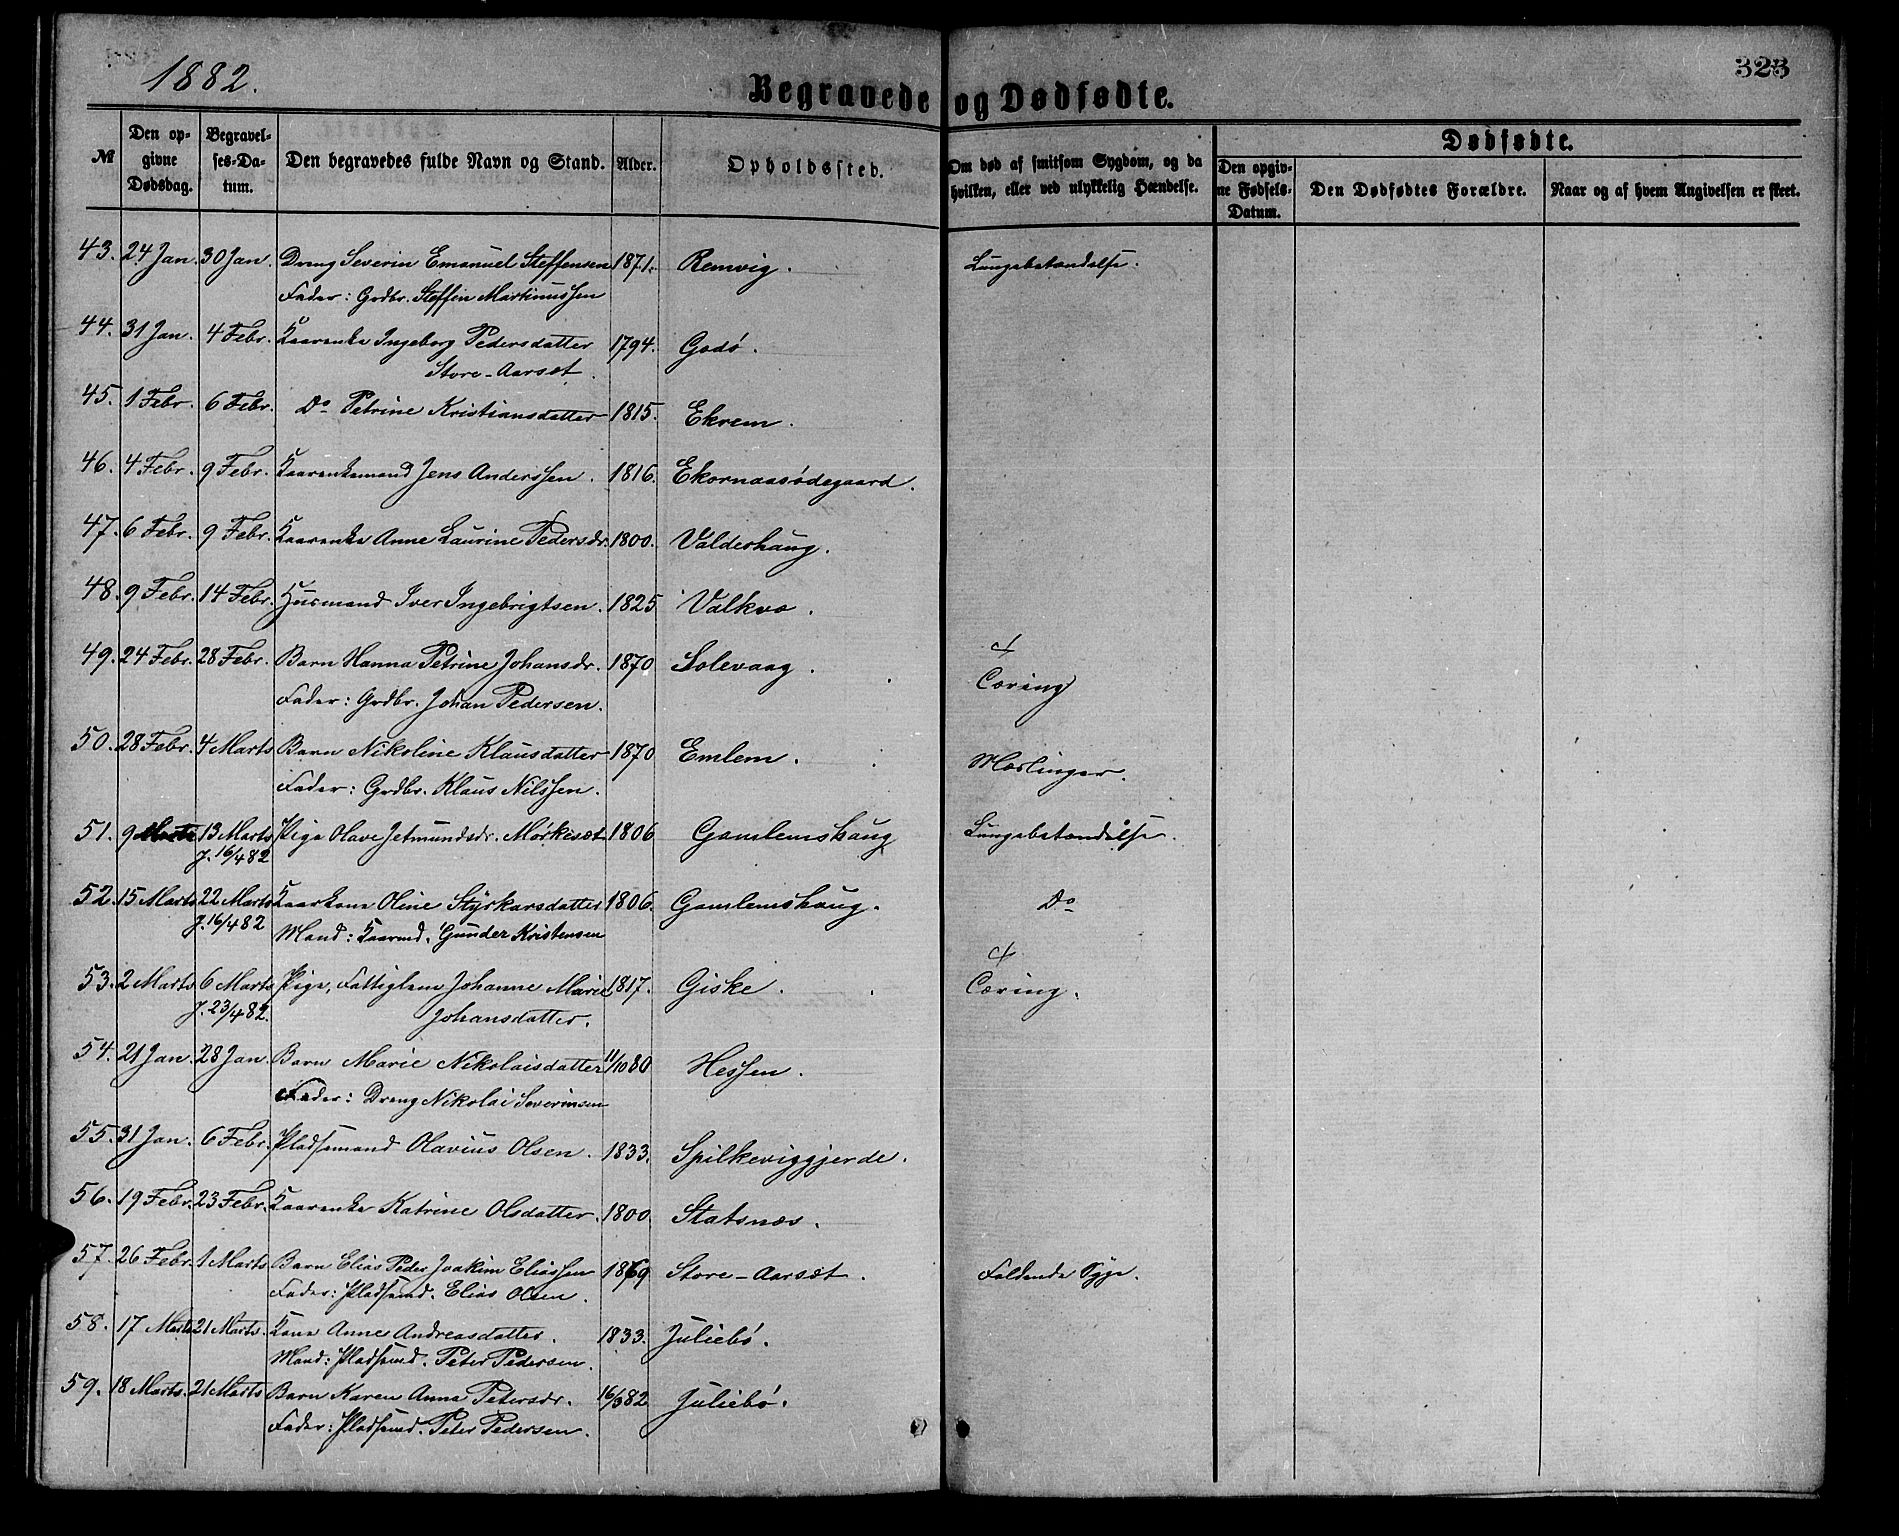 1882.
323
Begravede og Dødfødte.
№
Den opgivne Dødsdag.
Begravelses-Datum.
Den begravedes fulde Navn og Stand.
Alder.
Opholdssted.
Om død af smitsom Sygdom, og da hvilken, eller ved ulykkelig Hændelse.
Dødfødte.
Den opgivne Fødsels-Datum.
Den Dødfødtes Forældre.
Naar og af hvem Angivelsen er skeet.
43. 24 Jan. 30 Jan. Dreng Severin Emanuel Steffensen 1871. Remvig. Lungebetændelse.
Fader: Grdbr. Steffen Martinussen
44. 31 Jan. 4 Febr. Kaarenke Ingeborg Pedersdatter 1794. Godø.
Store-Aarsæt
45. 1 Febr. 6 Febr. Do Petrine Kristiansdatter 1815. Ekrem.
46. 4 Febr. 9 Febr. Kaarenkemand Jens Anderssen. 1816. Ekornaasødegaard.
47. 6 Febr. 9 Febr. Kaarenke Anne Laurine Pedersdr. 1800. Valderhaug.
48. 9 Febr. 14 Febr. Husmand Iver Ingebrigtsen. 1825 Valkvæ.
49. 24 Febr. 28 Febr. Barn Hanna Petrine Johansdr. 1870 Solevaag.
Fader: Grdbr. Johan Pedersen. Tæring
50. 28 Febr. 4 Marts Barn Nikoline Klausdatter 1870 Emlem. Mæslinger.
Fader: Grdbr. Klaus Nilssen.
51. 9 Marts 13 Marts Pige Olave Jetmundsdr. Mørkesæt 1806 Gamlemshaug Lungebetændelse.
J. 16/4 82
52. 15 Marts 22 Marts Kaarkone Oline Styrkarsdatter 1806. Gamlemshaug. Do
J. 16/4 82 Mand: Kaarmd. Gunder Kristensen
53. 2 Marts 6 Marts Pige, Fattiglem Johanne Marie 1817. Giske. Tæring.
J. 23/4 82. Johansdatter.
54. 21 Jan. 28 Jan. Barn Marie Nikolaisdatter 11/10 80 Hessen.
Fader: Dreng Nikolai Severinsen
55. 31 Jan. 6 Febr. Pladsemand Olavius Olsen. 1833. Spilkeviggjerde.
56. 19 Febr. 23 Febr. Kaarenke Katrine Olsdatter. 1800. Statsnæs.
57. 26 Febr. 1 Marts Barn Elias Peder Joakim Eliassen 1869 Store-Aarsæt. Faldende Syge.
Fader: Pladsemd. Elias Olsen.
58. 17 Marts 21 Marts. Kone Anne Andreasdatter. 1833. Juliebø.
Mand: Pladsemd. Peter Pedersen.
59. 18 Marts. 21 Marts Barn Karen Anna Petersdr. 16/3 82 Juliebø.
Fader: Pladsemd. Peter Pedersen.